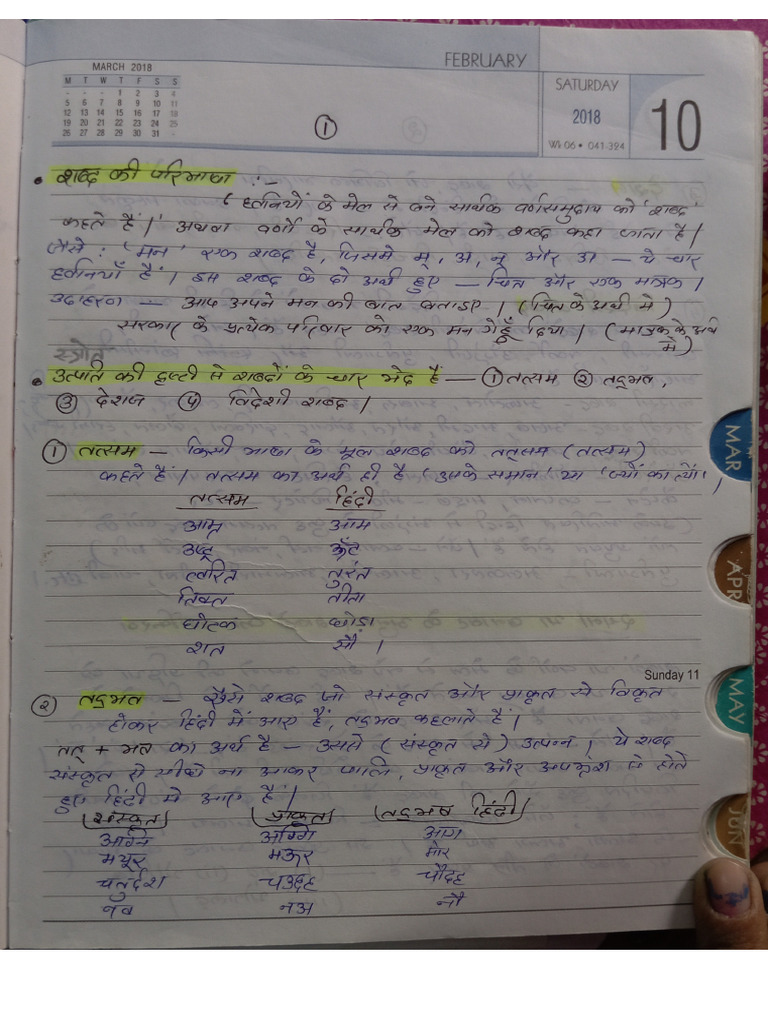 FEBRUARY
MARCH 2018
M T W T F S S
- - - 1 2 3 4
5 6 7 8 9 10 11
12 13 14 15 16 17 18
19 20 21 22 23 24 25
26 27 28 29 30 31 -
SATURDAY
2018
Wk 06 • 041-324
10
①
• शब्द की परिभाषा :-
(ध्वनियों के मेल से बने सार्थक वर्णसमुदाय को 'शब्द'
कहते हैं।' अथवा वर्णों के सार्थक मेल को शब्द कहा जाता है।
जैसे : 'मन' एक शब्द है, जिसमे म्, अ, न् और अ — ये चार
ध्वनियाँ हैं। इस शब्द के दो अर्थ हुए — चित और एक मात्रक।
उदाहरण — आप अपने मन की बात बताइए। (चित के अर्थ मे)
सरकार के प्रत्येक परिवार को एक मन गेहूँ दिया। (मात्रक के अर्थ
मे)
स्त्रोत
• उत्पति की दृष्टी से शब्दों के चार भेद हैं — ① तत्सम ② तद्भव,
③ देशज ④ विदेशी शब्द।
① तत्सम — किसी भाषा के मूल शब्द को तत्सम (तत्सम)
कहते हैं। तत्सम का अर्थ ही है 'उसके समान' या 'ज्यों का त्यों'।
तत्सम हिंदी
आम्र आम
उष्ट्र ऊँट
त्वरित तुरंत
तिक्त तीता
घोटक घोड़ा
शत सौ।
Sunday 11
② तद्भव — ऐसे शब्द जो संस्कृत और प्राकृत से विकृत
होकर हिंदी में आए हैं, तद्भव कहलाते हैं।
तत् + भव का अर्थ है — उससे (संस्कृत से) उत्पन्न। ये शब्द
संस्कृत से सीधे ना आकर पालि, प्राकृत और अपभ्रंश से होते
हुए हिंदी मे आए हैं।
संस्कृत प्राकृत तद्भव हिंदी
अग्नि अग्गि आग
मयूर मऊर मोर
चतुर्दश चउद्दह चौदह
नव नअ नौ
MAR
APR
MAY
JUN